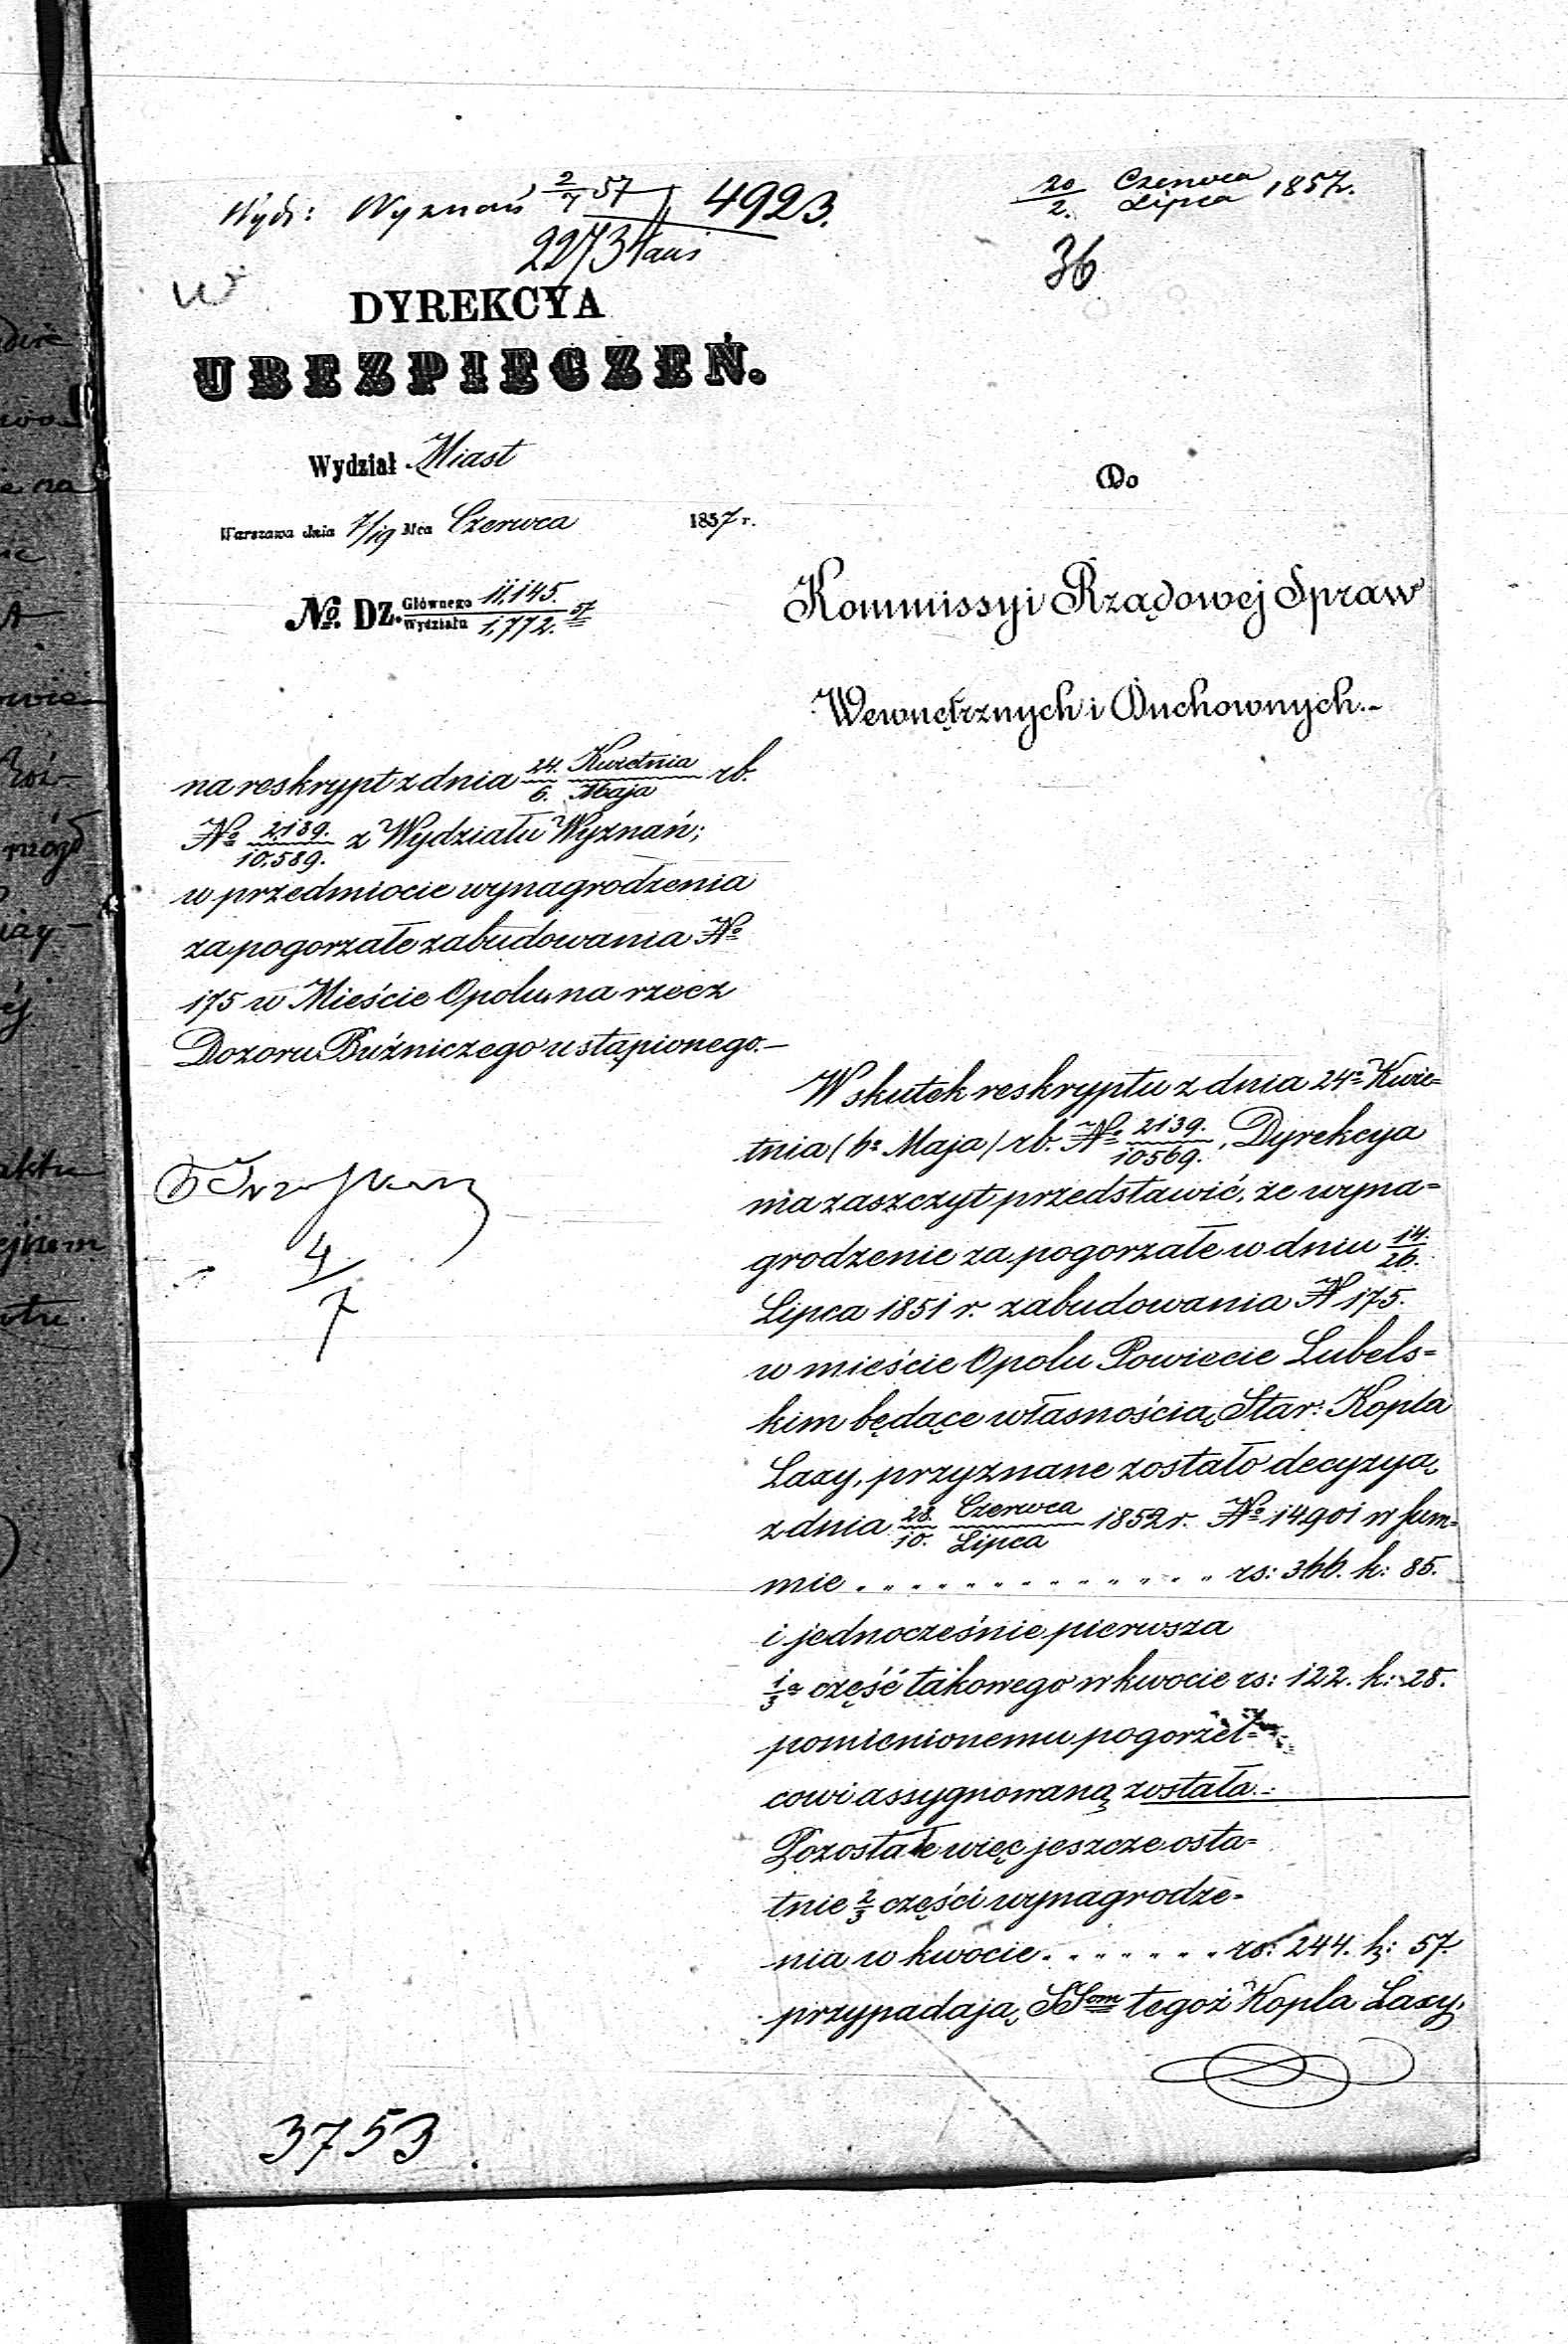 Wydz: Wyznań 2/7 57 4923.
2273
20/2. Czerwca/Lipca 1857.
36
W
DYREKCYA
UBEZPIECZEŃ.
Wydział Miast
Warszawa dnia 7/19 Mca Czerwca 1857 r.
No. Dz. Głównego/Wydziału 11,145./1,772. 57
Do
Kommissyi Rządowej Spraw
Wewnętrznych i Duchownych.-
na reskrypt z dnia 24./6. Kwietnia/Maja rb.
No 2139./10,589. z Wydziału Wyznań;
w przedmiocie wynagrodzenia
za pogorzałe zabudowania No
175 w Mieście Opolu, na rzecz
Dozoru Bużniczego ustąpionego.-
4/7
W skutek reskryptu z dnia 24o Kwie=
tnia (6o Maja) rb. No 2139./10569., Dyrekcya
ma zaszczyt przedstawić, że wyna=
grodzenie za pogorzałe w dniu 14./26.
Lipca 1851 r. zabudowania N 175.
w mieście Opolu Powiecie Lubels=
kim będące własnością Star: Kopla
Laxy, przyznane zostało decyzyą
z dnia 28./10. Czerwca/Lipca 1852 r. No 14901 w sum=
mie . . . . . . . . . . . . . rs: 366. k: 85.
i jednocześnie pierwsza
1/3a część takowego w kwocie rs: 122. k: 28.
pomienionemu pogorzel=
cowi assygnowaną została.-
Pozostałe więc jeszcze osta=
tnie 2/3 części wynagrodze=
nia w kwocie . . . . . . . rs: 244. k: 57.
przypadają SSom tegoż Kopla Laxy,
3753